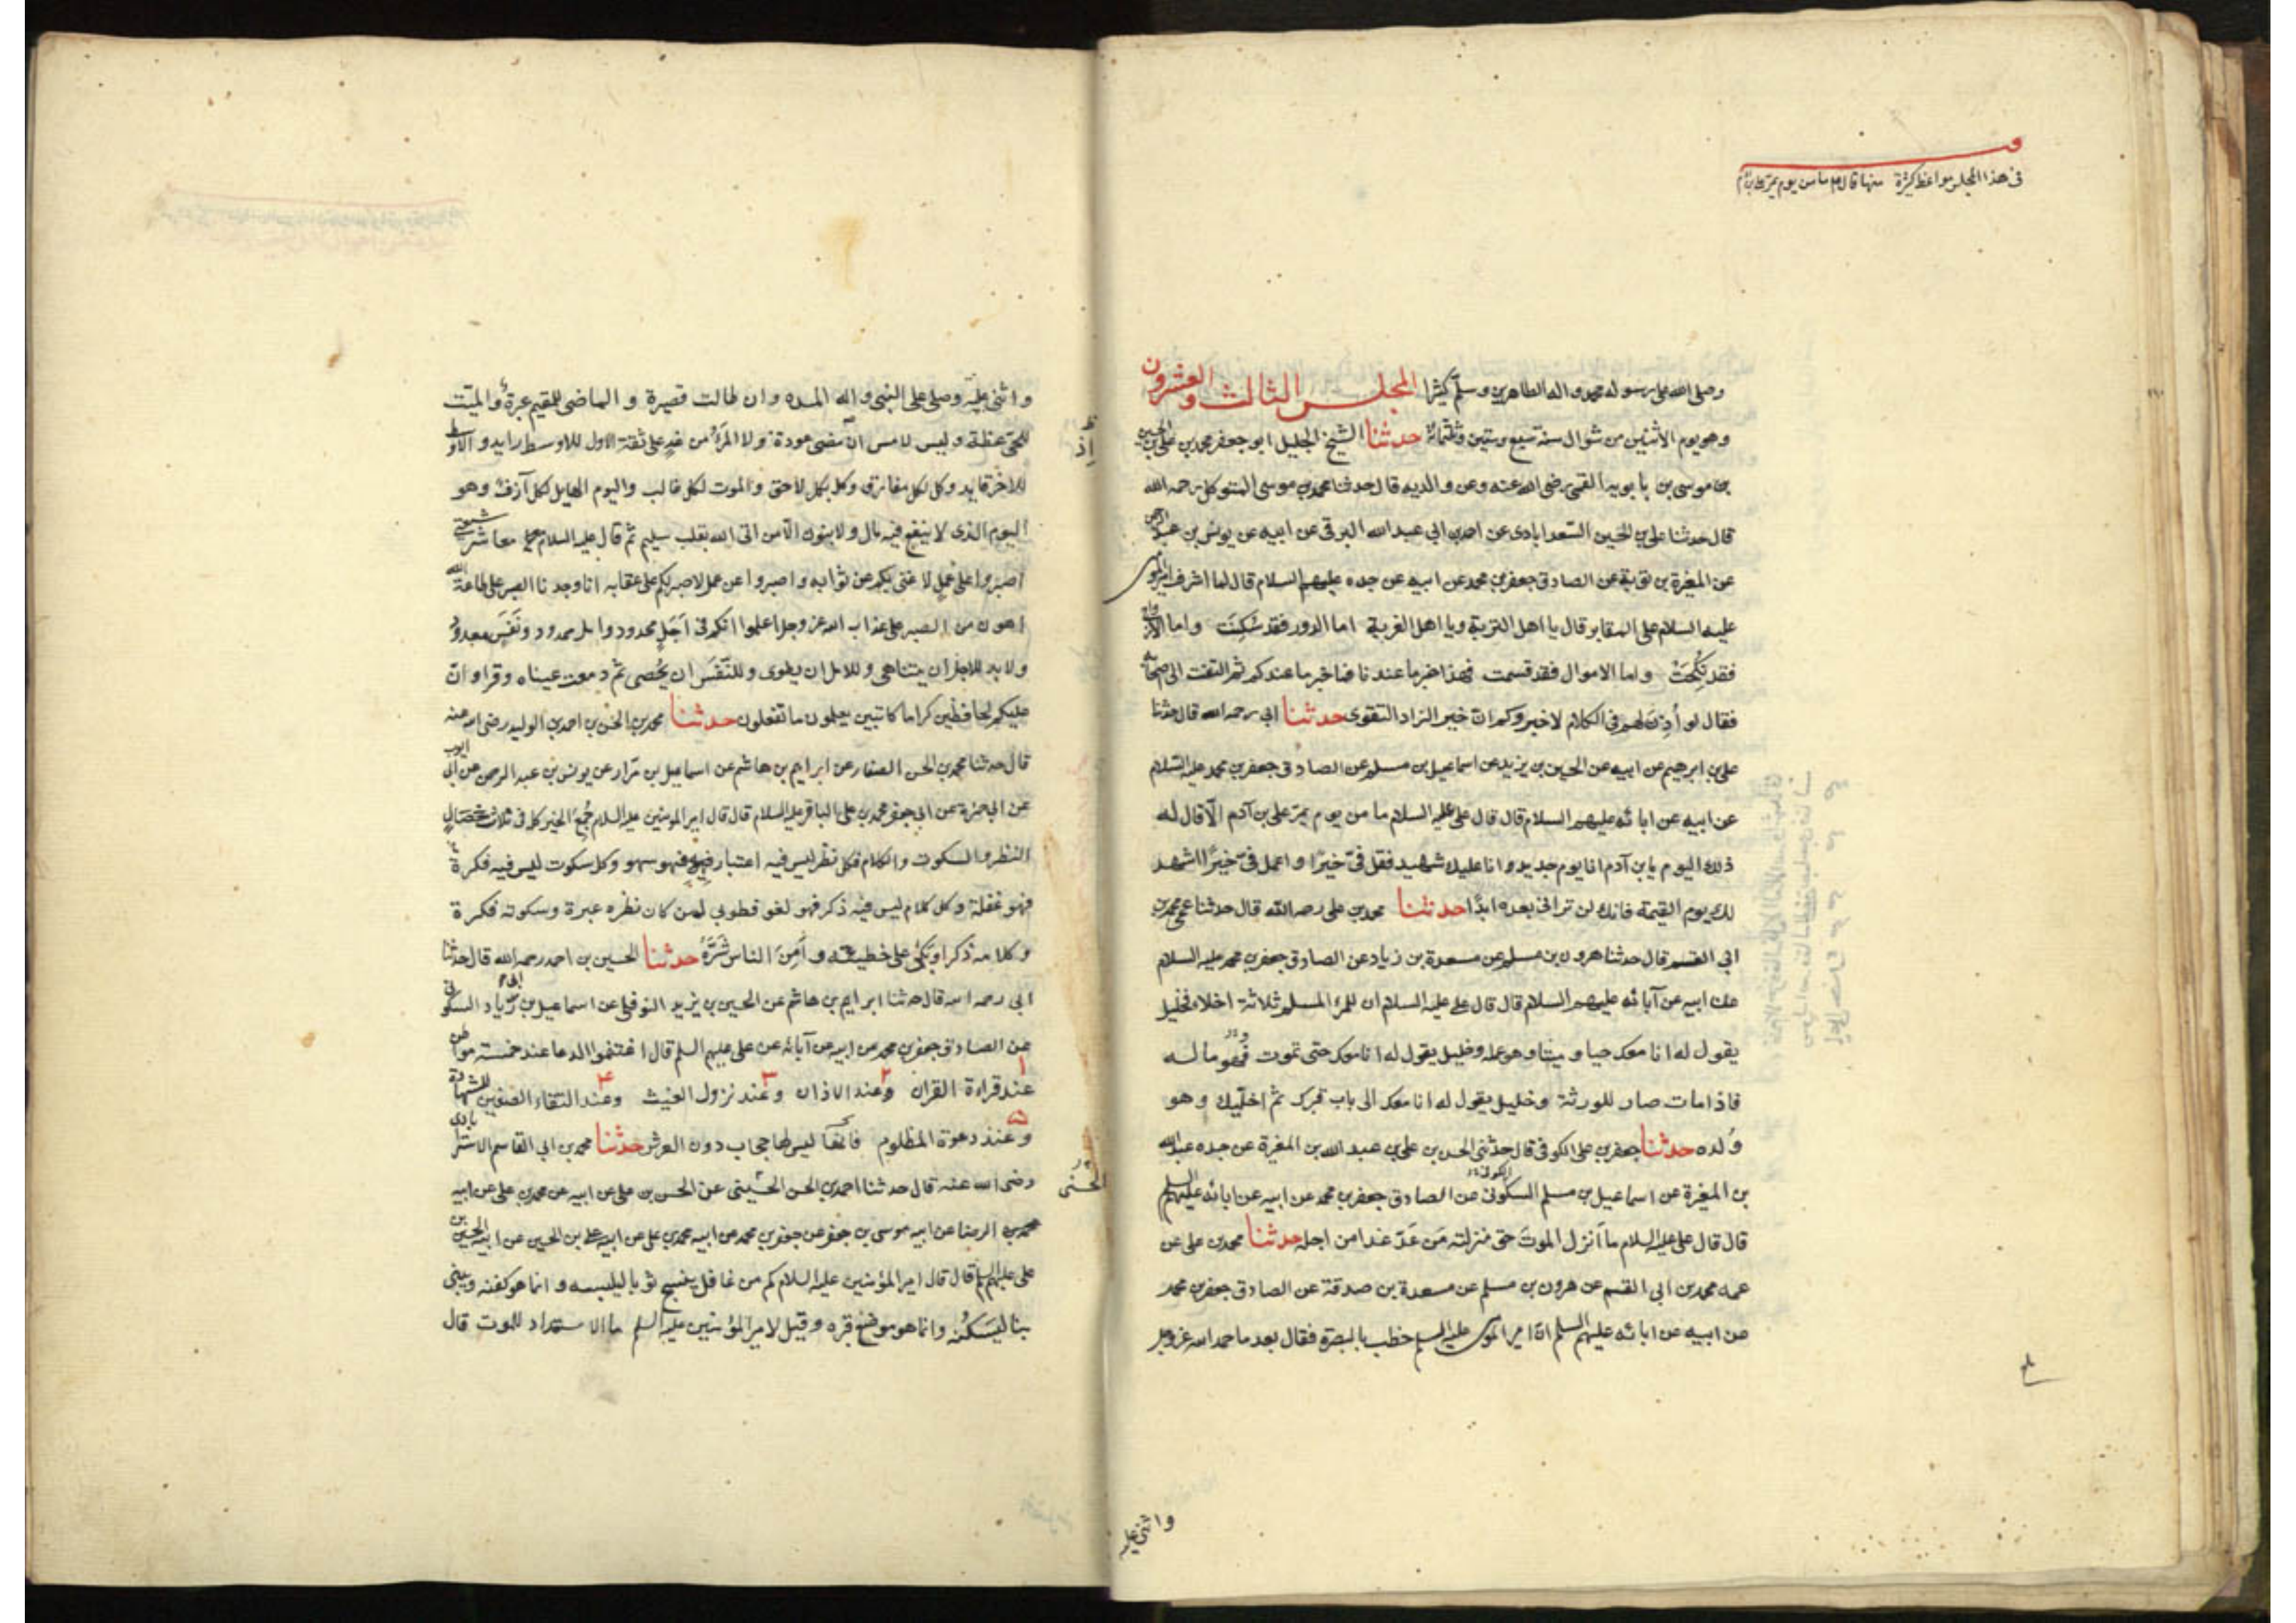 في هذا المجلس مواعظ كثيرة منها قال ع ما من يوم يمر على ابن آدم
وصلى الله على رسوله محمد واله الطاهرين وسلم كثيرا المجلس الثالث والعشرون
وهو يوم الاثنين من شوال سنة سبع وستين وثلثمائة حدثنا الشيخ الجليل ابو جعفر محمد بن علي بن الحسين
بن موسى بن بابويه القمي رضى الله عنه وعن والديه قال حدثنا محمد بن موسى المتوكل رحمه الله
قال حدثنا علي بن الحسين السعدابادى عن احمد بن ابي عبد الله البرقى عن ابيه عن يونس بن عبد الرحمن
عن المغيرة بن توبة عن الصادق جعفر بن محمد عن ابيه عن جده عليهم السلام قال لما اشرف امير المؤمنين
عليه السلام على المقابر قال يا اهل التربة ويا اهل الغربة اما الدور فقد سكنت واما الازواج
فقد نكحت واما الاموال فقد قسمت فهذا خبر ما عندنا فما خبر ما عندكم ثم التفت الى اصحابه
فقال لو أذن لهم فى الكلام لاخبروكم ان خير الزاد التقوى حدثنا ابي رحمه الله قال حدثنا
على بن ابرهيم عن ابيه عن الحسين بن يزيد عن اسماعيل بن مسلم عن الصادق جعفر بن محمد عليه السلام
عن ابيه عن ابائه عليهم السلام قال قال على عليه السلام ما من يوم يمر على بن آدم الا قال له
ذلك اليوم يا بن آدم انا يوم جديد وانا عليك شهيد فقل فىّ خيرا واعمل فىّ خيرا اشهد
لك يوم القيمة فانك لن ترانى بعده ابدا حدثنا محمد بن على رحمه الله قال حدثنا عمى محمد بن
ابي القسم قال حدثنا هرون بن مسلم عن مسعدة بن زياد عن الصادق جعفر بن محمد عليه السلام
عن ابيه عن آبائه عليهم السلام قال قال على عليه السلام ان للمرء المسلم ثلاثة اخلاء فخليل
يقول له انا معك حيا وميتا وهو عمله وخليل يقول له انا معك حتى تموت وهو ماله
فاذا مات صار للورثة وخليل يقول له انا معك الى باب قبرك ثم اخليك وهو
ولده حدثنا جعفر بن على الكوفى قال حدثنى الحسن بن على بن عبد الله بن المغيرة عن جده عبد الله
بن المغيرة عن اسماعيل بن مسلم السكونى عن الصادق جعفر بن محمد عن ابيه عن ابائه عليهم السلم
قال قال على عليه السلام ما أنزل الموت حق منزلته من عدّ غدا من اجله حدثنا محمد بن على عن
عمه محمد بن ابى القسم عن هرون بن مسلم عن مسعدة بن صدقة عن الصادق جعفر بن محمد
عن ابيه عن ابائه عليهم السلم ان امير المؤمنين عليه السلم خطب بالبصرة فقال بعد ما حمد الله عز وجل
واثنى عليه
واثنى عليه وصلى على النبى واله المده وان طالت قصيرة والماضى للمقيم عبرة والميت
للحى عظة وليس لامس ان مضى عودة ولا المرء من غد على ثقة الاول للاوسط رايد والاوسط
اذ
للاخر قايد وكل لكل مفارق وكل بكل لاحق والموت لكل غالب واليوم الهايل لكل آزف وهو
اليوم الذى لا ينفع فيه مال ولا بنون الا من اتى الله بقلب سليم ثم قال عليه السلام معاشر شيعتى
اصبروا على عمل لا غنى بكم عن ثوابه واصبروا عن عمل لا صبر لكم على عقابه انا وجدنا الصبر على طاعة الله
اهون من الصبر على عذاب الله عز وجل اعلموا انكم فى أجل محدود وامل ممدود ونفس معدود
ولا بد للاجل ان يتناهى وللامل ان يطوى وللنفس ان يحصى ثم دمعت عيناه وقرا وان
عليكم لحافظين كراما كاتبين يعلمون ما تفعلون حدثنا محمد بن الحسن بن احمد بن الوليد رضى الله عنه
قال حدثنا محمد بن الحسن الصفار عن ابراهيم بن هاشم عن اسماعيل بن مرار عن يونس بن عبد الرحمن عن ابى ايوب
عن ابى حمزة عن ابى جعفر محمد بن على الباقر عليه السلام قال قال امير المؤمنين عليه السلام جمع الخير كله فى ثلاث خصال
النظر والسكوت والكلام فكل نظر ليس فيه اعتبار فهو سهو وكل سكوت ليس فيه فكرة
فهو غفلة وكل كلام ليس فيه ذكر فهو لغو فطوبى لمن كان نظره عبرة وسكوته فكرة
وكلامه ذكرا وبكى على خطيئته وأمن الناس شره حدثنا الحسين بن احمد رحمه الله قال حدثنا
ابى رحمه الله قال حدثنا ابراهيم بن هاشم عن الحسين بن يزيد النوفلى عن اسماعيل بن ابى زياد السكونى
عن الصادق جعفر بن محمد عن ابيه عن آبائه عن على عليهم السلم قال اغتنموا الدعا عند خمسة مواطن
عند قراءة القران وعند الاذان وعند نزول الغيث وعند التقاء الصفين للشهادة
وعند دعوة المظلوم فانها ليس لها حجاب دون العرش حدثنا محمد بن ابى القاسم الاسترابادى
رضى الله عنه قال حدثنا احمد بن الحسن الحسينى عن الحسن بن على عن ابيه عن محمد بن على عن ابيه
الحسنى
الرضا عن ابيه موسى بن جعفر عن جعفر بن محمد عن ابيه محمد بن على عن ابيه على بن الحسين عن ابيه الحسين بن
على عليهم السلم قال قال امير المؤمنين عليه السلام كم من غافل ينسج ثوبا ليلبسه وانما هو كفنه ويبنى
بنا ليسكنه وانما هو موضع قبره وقيل لامير المؤمنين عليه السلم ما الاستعداد للموت قال